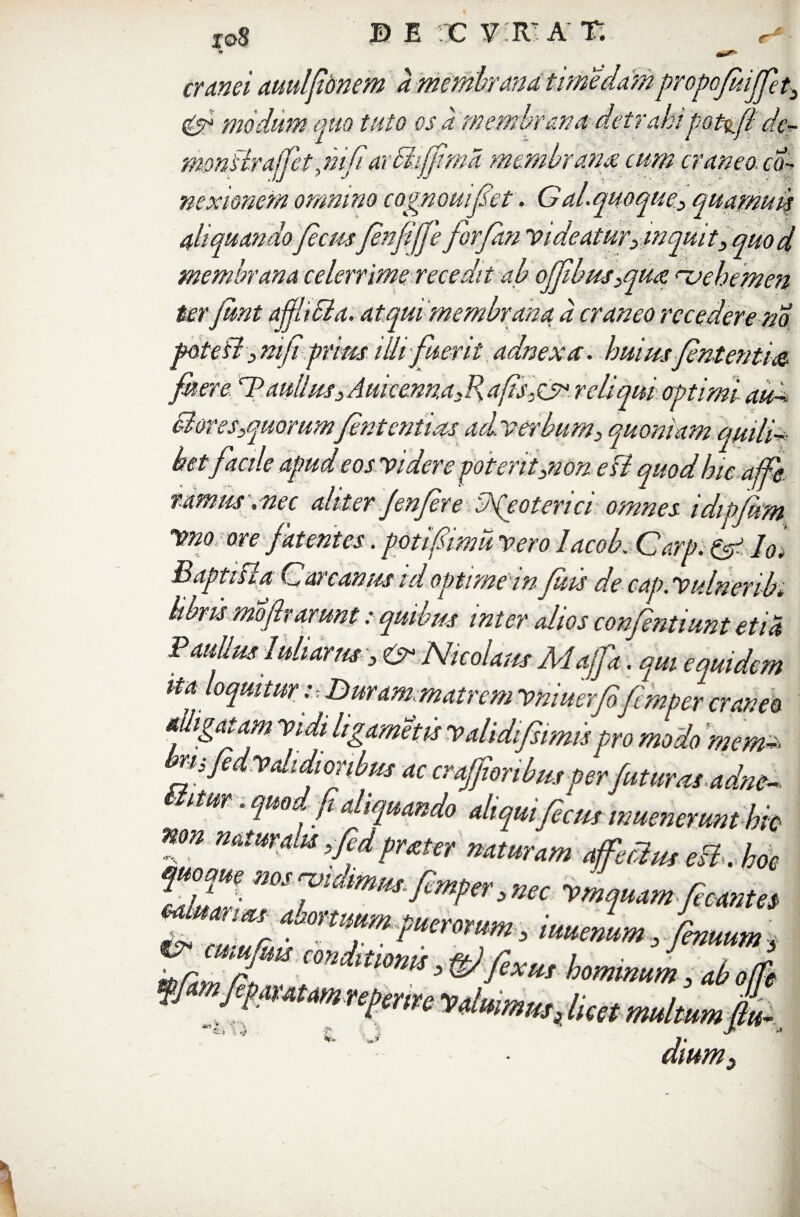 108 DE CVRAT.
cranei auulſionem à membrana timēdam propoſuiſſet,
& modum quo tuto os à membrana detrahi poteſt de-
monſtraſſet, niſi arctiſſimā membranæ cum craneo cō-
nexionem omnino cognouiſſet. Gal. quoque, quamuis
aliquando ſecus ſenſiſſe forſan videatur, inquit, quod
membrana celerrime recedit ab oſſibus, quæ vehemen
ter ſunt afflicta. atqui membrana à craneo recedere nō
poteſt, niſi prius illi fuerit adnexa. huius ſententiæ
fuere Paullus, Auicenna, Raſis, & reliqui optimi au-
ctores, quorum ſententias ad verbum, quoniam quili-
bet facile apud eos videre poterit, non eſt quod hic affe
ramus. nec aliter ſenſere Neoterici omnes idipſum
vno ore fatentes. potiſsimū vero Iacob. Carp. & Io.
Baptiſta Carcanus id optime in ſuis de cap. vulnerib.
libris mōſtrarunt: quibus inter alios conſentiunt etiā
Paullus Iuliarius, & Nicolaus Maſſa. qui equidem
ita loquitur: Duram matrem vniuerſo ſemper craneo
alligatam vidi ligamētis validiſsimis pro modo mem-
bris ſed validioribus ac craſſioribus per ſuturas adne-
ctitur. quod ſi aliquando aliqui ſecus inuenerunt hic
non naturalis, ſed præter naturam affectus eſt. hoc
quoque nos vidimus ſemper, nec vmquam ſecantes
caluarias abortuum puerorum, iuuenum, ſenuum,
& cuiuſuis conditionis, & ſexus hominum, ab oſſe
ipſam ſeparatam reperire valuimus, licet multum ſtu-
dium,